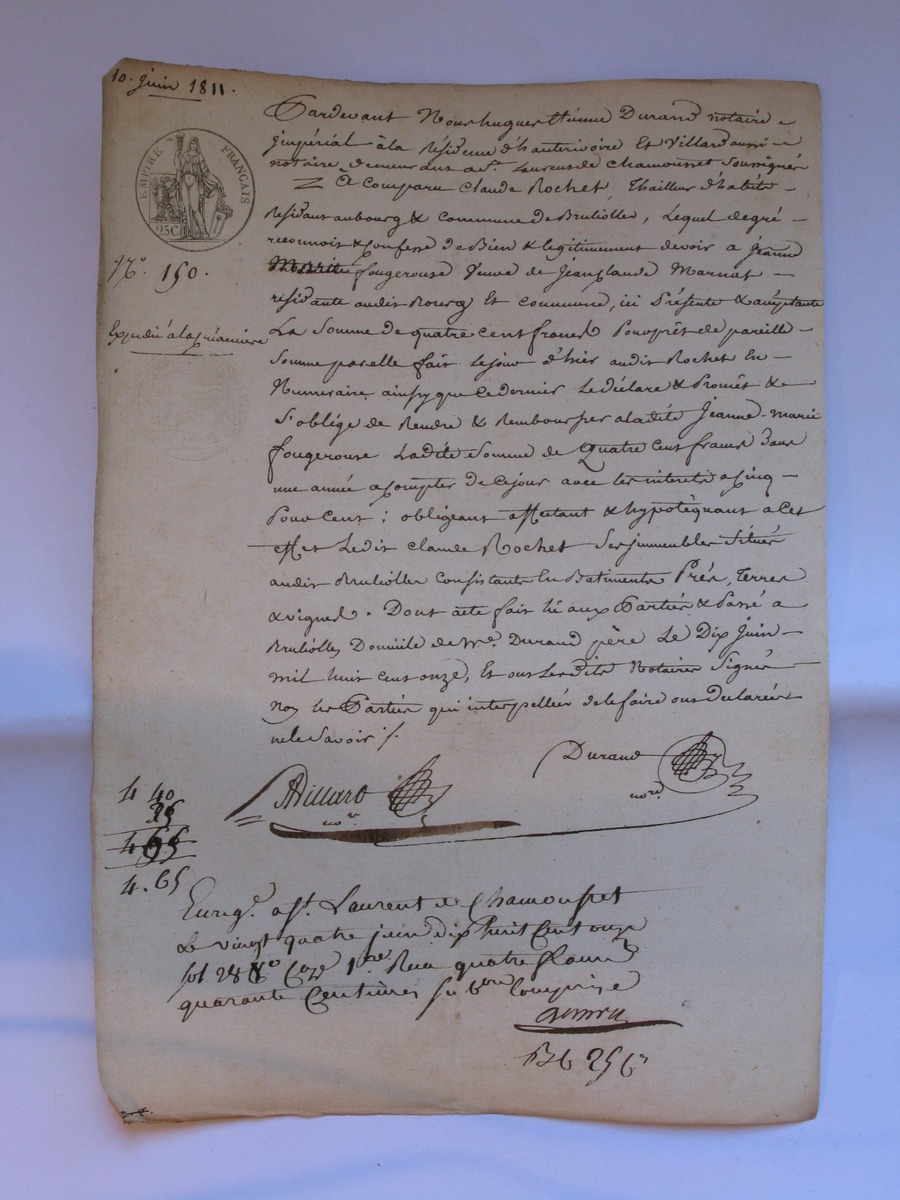 10. juin 1811.
EMPIRE FRANÇAIS
25C
N.o 150.
Expedié a la créancière
Pardevant Nous hugues Etienne Durand notaire
jmpérial à la résidence d'hauterivoire Et Villard aussi
notaire demeurant a St. Laurent de Chamousset soussignés
à Comparu Claude Rochet, thailleur d'habits
residant au bourg & commune de Brullioles, Lequel de gré
reconnoit & confesse de Bien & legitimement devoir a jeanne
fougerouse veuve de jean claude Marnat
résidante audit Bourg Et commune, ici présente & acceptante
La somme de quatre cent francs pour prêt de pareille
somme par elle fait le jour d'hier audit Rochet En
Numeraire ainsy que ce dernier le déclare & Promet &
s'oblige de Rendre & Rembourser a ladite Jeanne-marie
fougerouse Ladite somme de quatre cent francs dans
une année a compter de ce jour avec les interets a cinq
pour cent; obligeant affectant & hypotèquant a cet
effet Ledit claude Rochet ses jmmeubles situés
audit Brulioles consistants En Batiments Prés, Terres
& vignes. Dont acte fait lu aux Parties & Passé a
Brulioles Domicile de Me. Durand père Le Dix juin
mil huit cent onze, Et ont lesdits Notaires signé
non les Parties qui interpellées de le faire ont déclaré
ne le savoir /.
Durand
nore.
Villard
nore.
4 40
25
4 65
4.65
Enregt. a St. Laurent de Chamousset
Le vingt quatre juin dix huit cent onze
fol 28 Vo Cases 1re Reçu quatre francs
quarante centimes son comprise
Pb 25 c